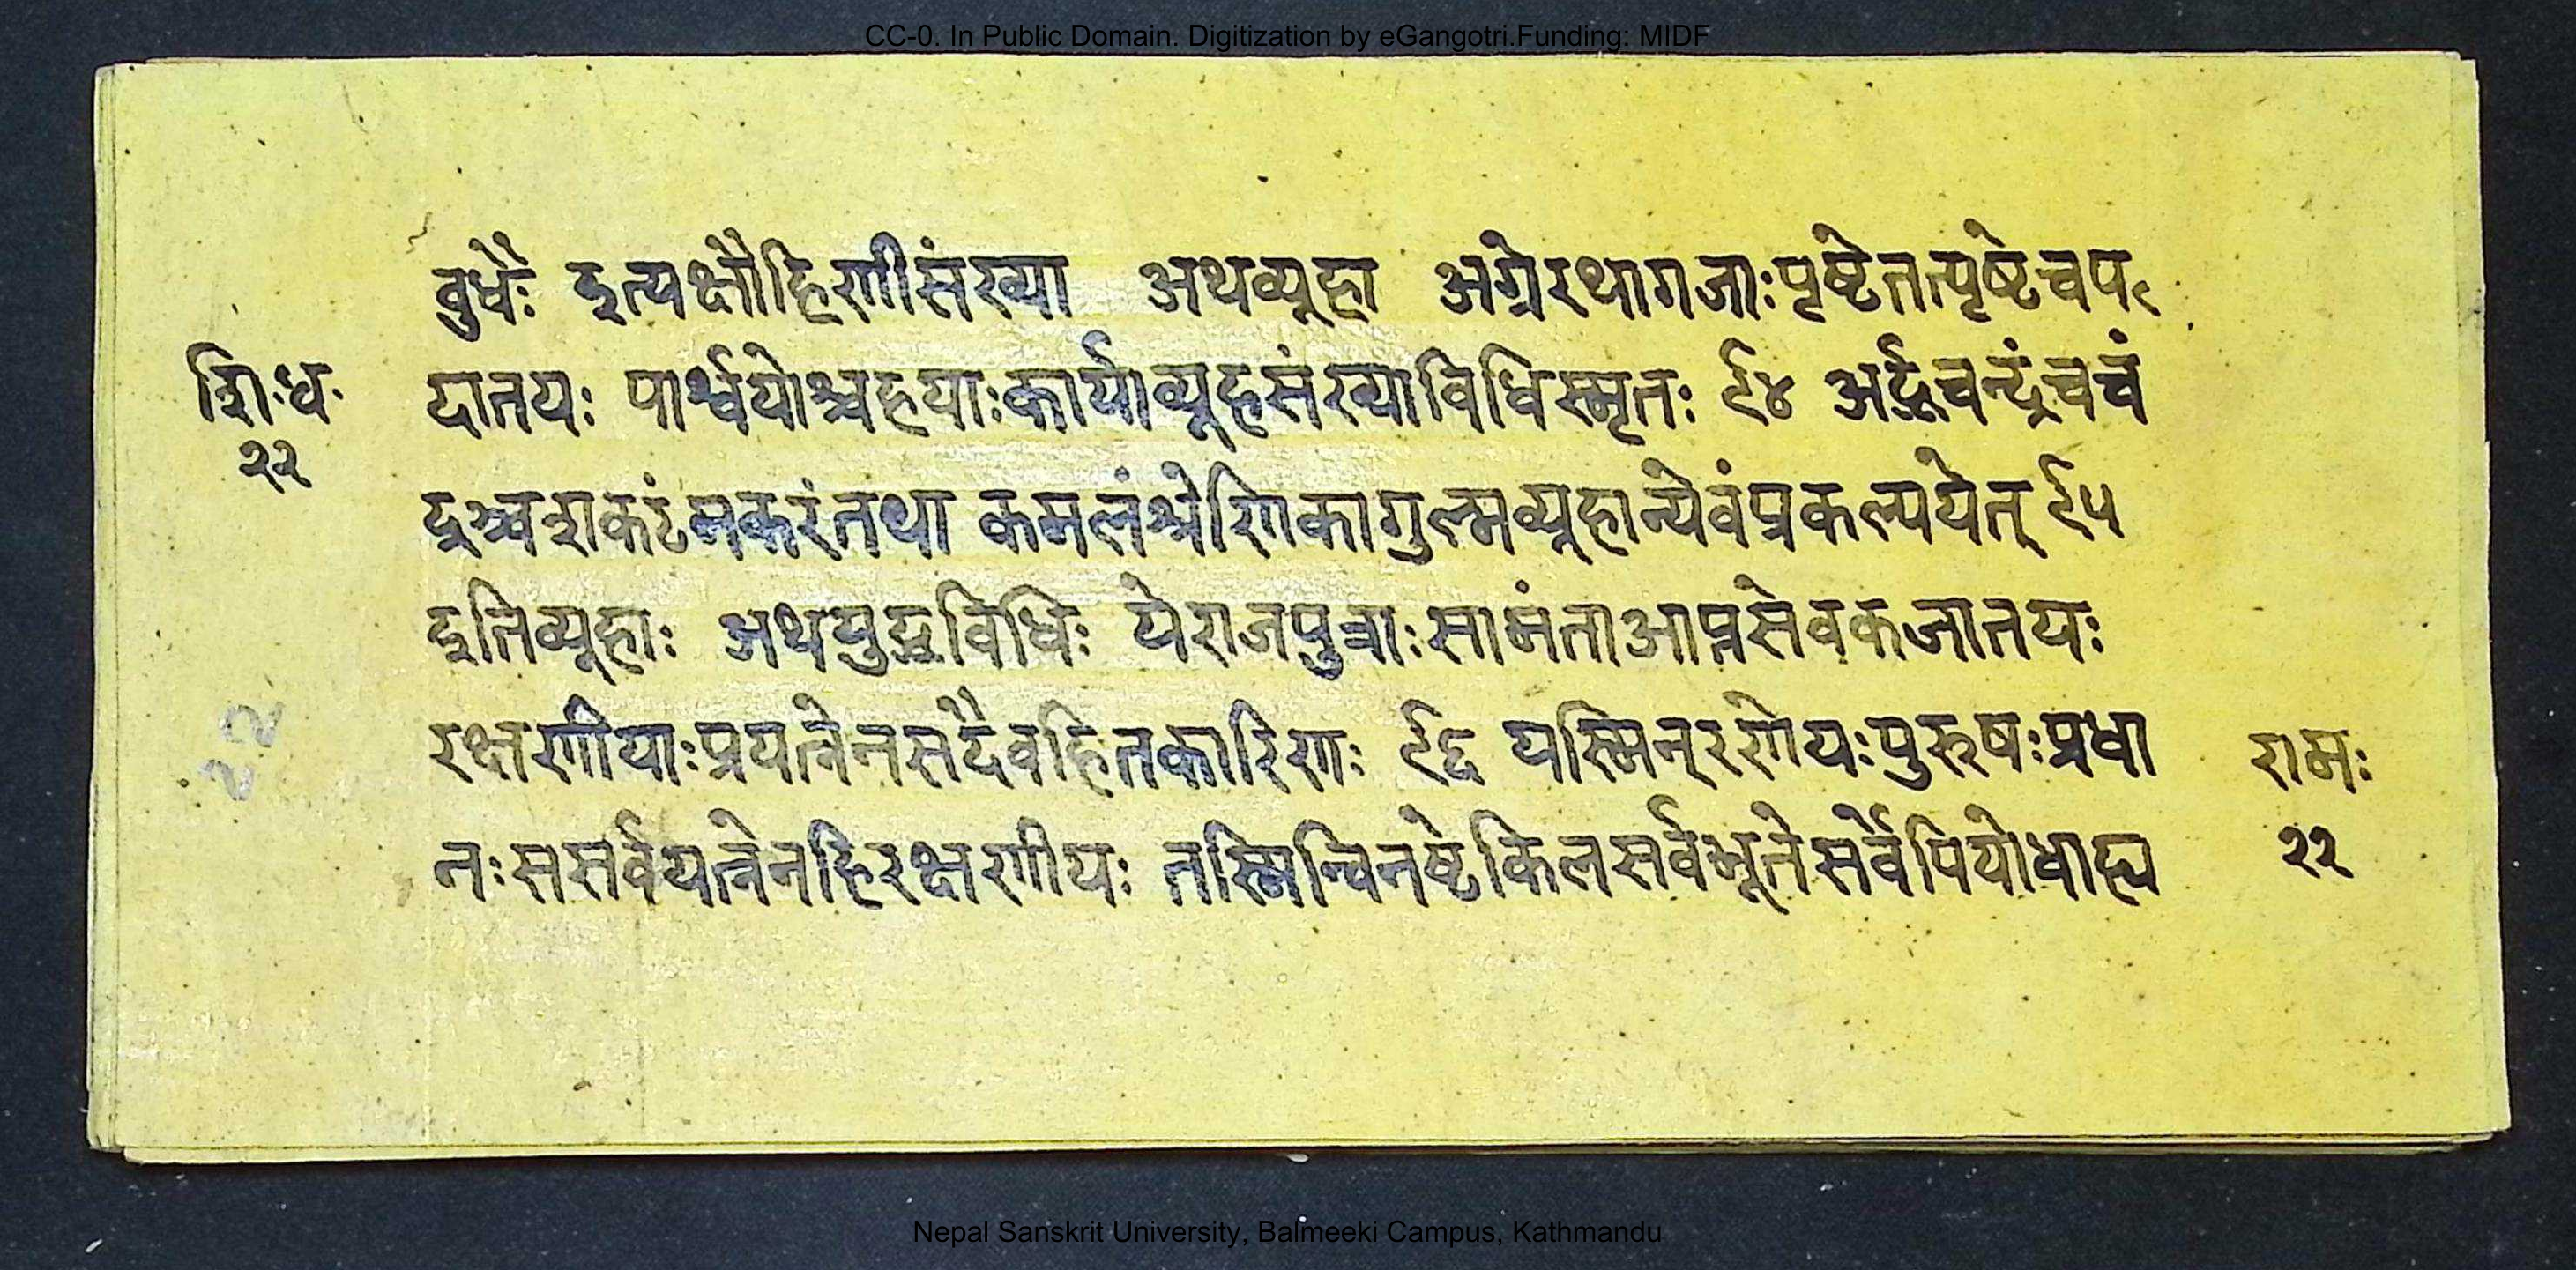 CC-0. In Public Domain. Digitization by eGangotri.Funding: MIDF
वुधैः इत्यक्षौहिणीसंख्या अथव्यूहा अग्रेरथागजाःपृष्टेतत्पृष्टेचप
शि॰ध॰
२२
दातयः पार्श्वयोश्चहयाःकार्याव्यूहसंख्याविधिस्मृतः ९४ अर्द्धचन्द्रंचचं
द्रश्चशकटंमकरंतथा कमलंश्रेणिकागुल्मव्यूहान्येवंप्रकल्पयेत् ९५
इतिव्यूहाः अथयुद्धविधिः येराजपुत्राःसामंताआप्तसेवकजातयः
रक्षणीयाःप्रयत्नेनसदैवहितकारिणः ९६ यस्मिन्रणेयःपुरुषःप्रधा
नःससर्वयत्नेनहिरक्षणीयः तस्मिन्विनष्टेकिलसर्वभूतेसर्वेपियोधाह्य
रामः
२२
२२
Nepal Sanskrit University, Balmeeki Campus, Kathmandu